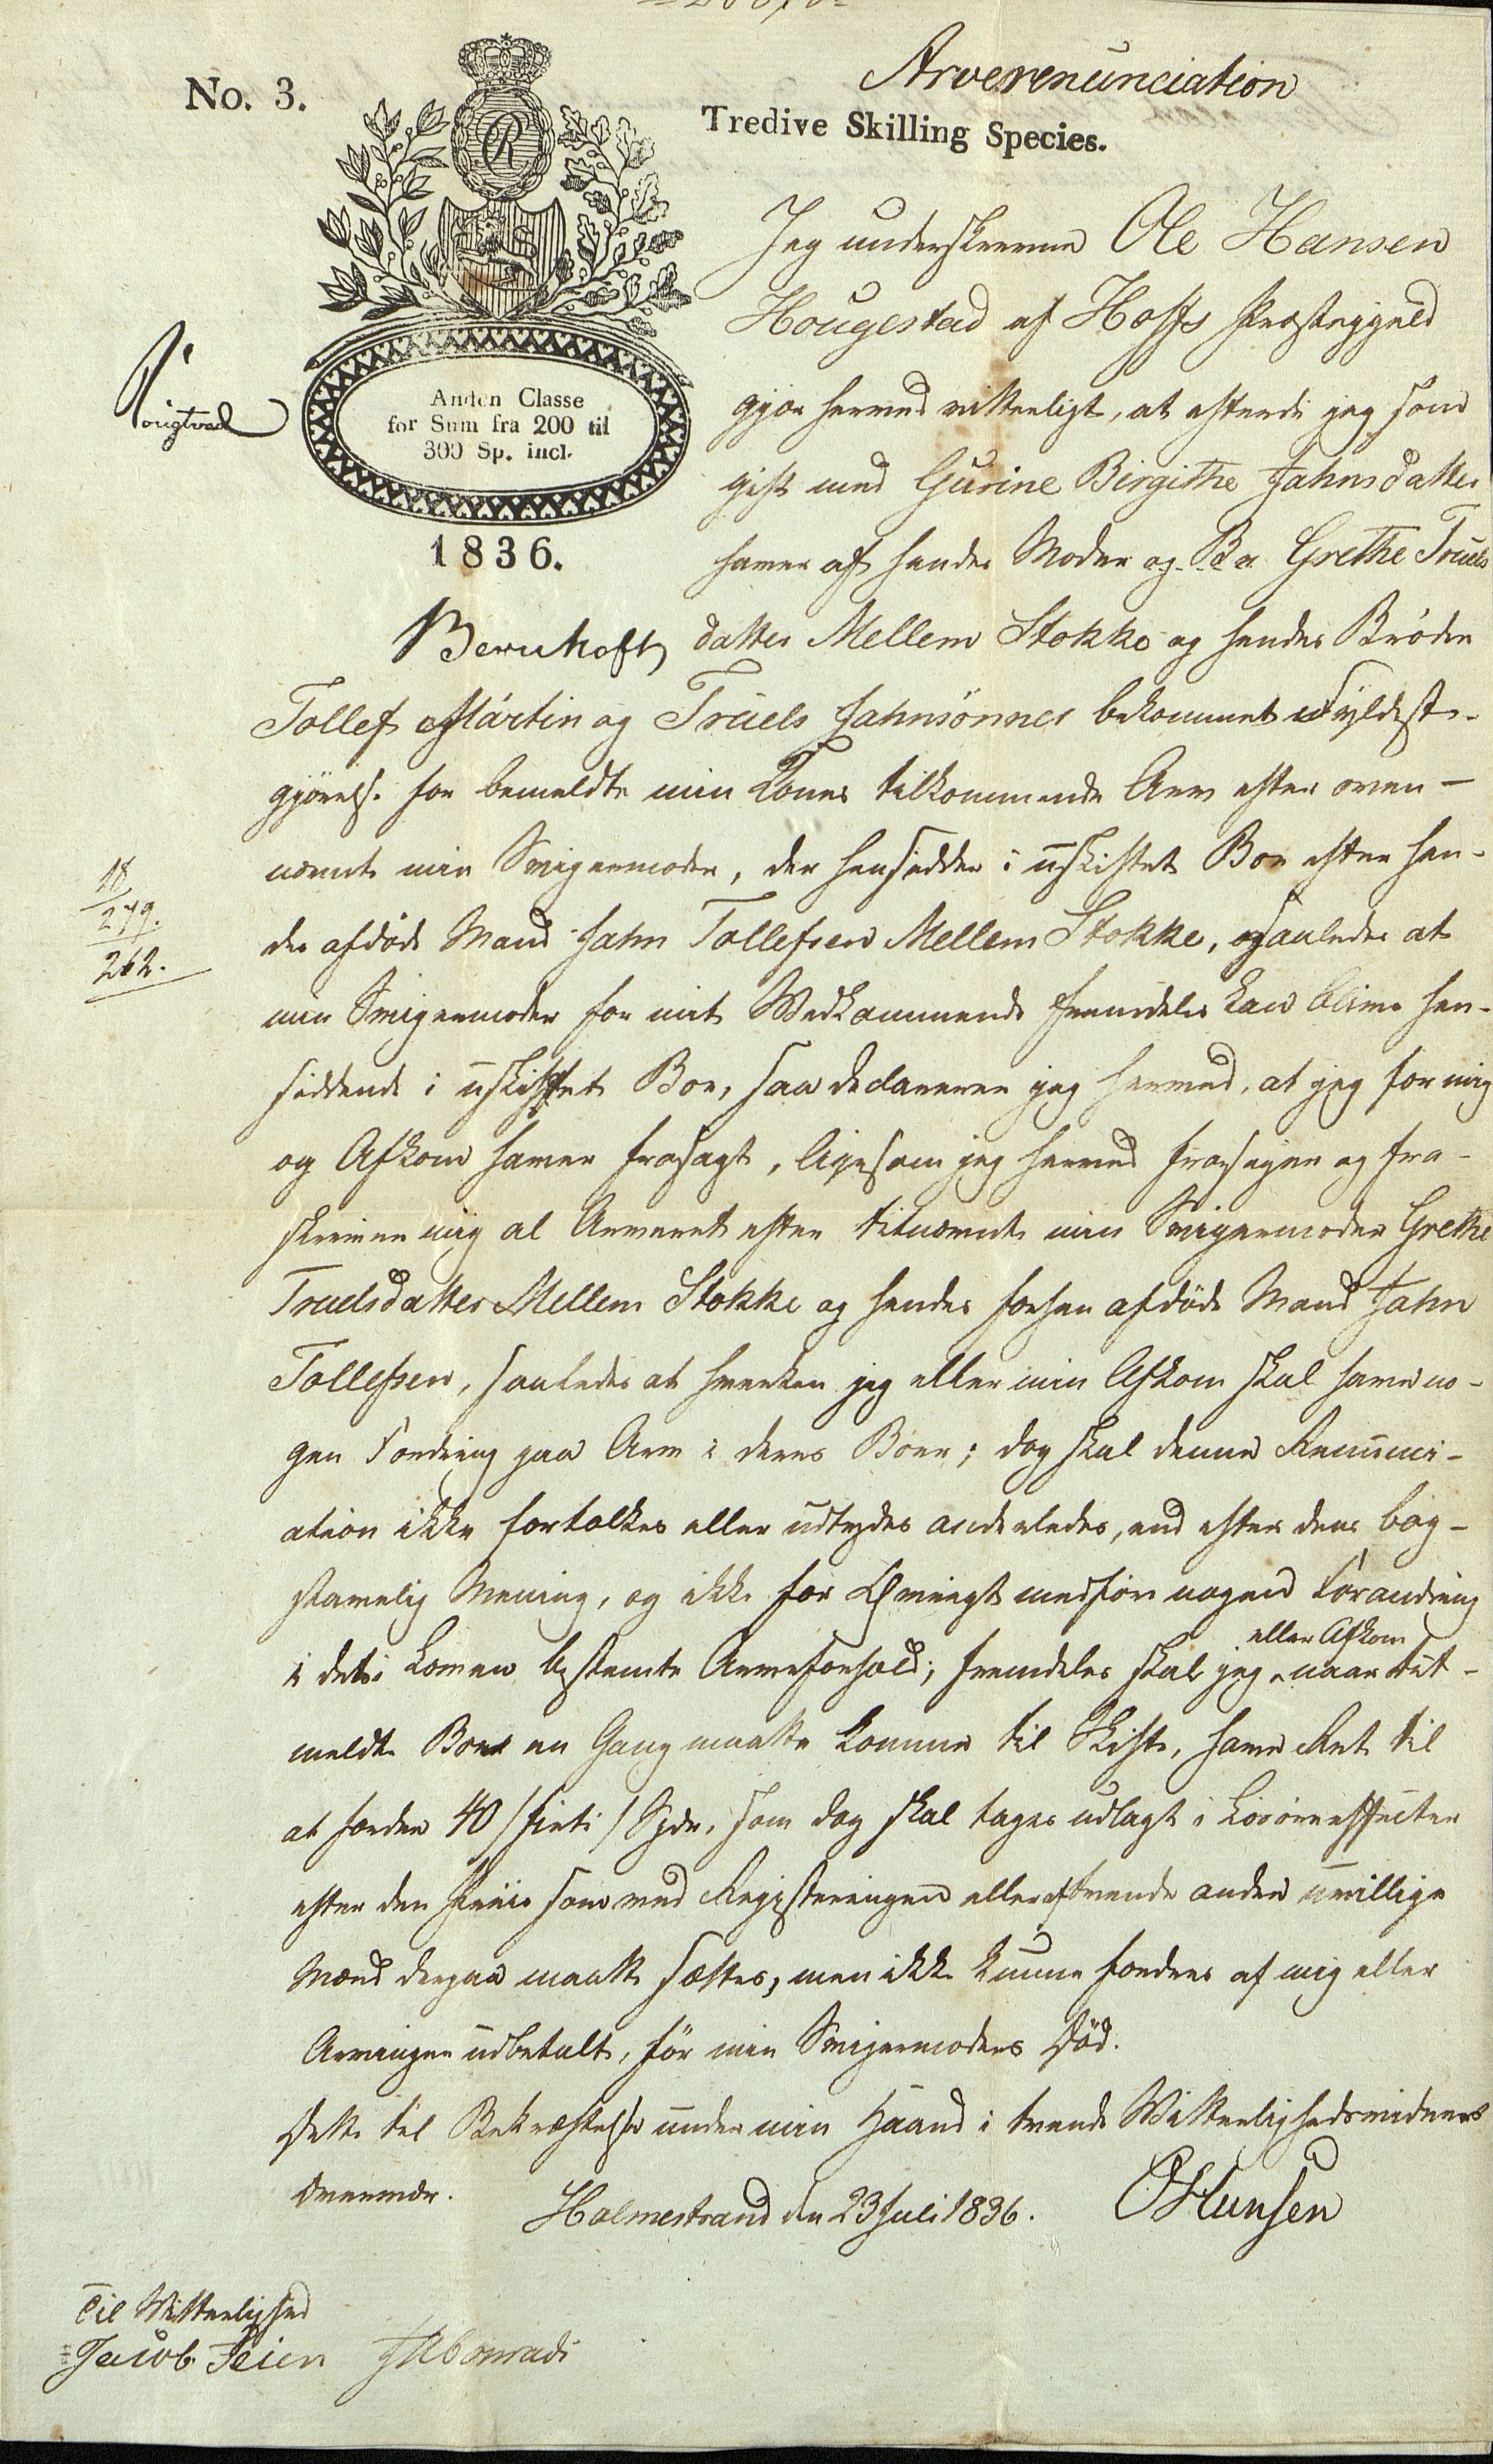 No. 3.
Arverenunciation
Tredive Skilling Species.
R
Anden Classe
for Sum fra 200 til
300 Sp. incl.
1836.
Bernhoft
Jeg underskrevne Ole Hansen
Hougestad af Hoffs Præstegjeld
gjør herved vitterligt, at efterdi jeg som
gift med Gurine Birgithe Jahnsdatter
haver af hendes Moder og Grethe Truels
datter Mellem Stokke og hendes Brødre
Tollef Martin og Truels Jahnsønner bekommet Fyldest-
gjørelse for bemeldte min Kones tilkommende Arv efter oven-
nevnte min Svigermoder, der hensidder i uskiftet Boe efter hen-
des afdøde Mand Jahn Tollefsen Mellem Stokke, saaledes at
min Svigermoder for mit Vedkommende fremdeles kan blive hen-
siddende i uskiftet Boe, saa declarerer jeg herved, at jeg for mig
og Afkom haver frasagt, ligesom jeg herved frasiger og fra-
skriver mig al Arveret efter titnævnte min Svigermoder Grethe
Truelsdatter Mellem Stokke og hendes forhen afdøde Mand Jahn
Tollefsen, saaledes at hverken jeg eller min Afkom skal have no-
gen Fordring paa Arv i deres Boer; dog skal denne Renunci-
ation ikke fortolkes eller udtydes anderledes, end efter dens bog-
stavelig Mening, og ikke for Øvrigt medføre nogen Forandring
i det i Loven bestemte Arveforhold; fremdeles skal jeg eller Afkom naar tit-
meldte Boe en Gang maatte komme til Skifte, have Ret til
at fordre 40 /firti/ Spdr, som dog skal tages udlagt i Løsøreeffecter
efter den Priis som ved Registeringen eller af tvende anden uvillige
Mænd derpaa maatte sættes, men ikke kunne fordres af mig eller
Arvinger udbetalt, før min Svigermoders Død.
Dette til Bekræftelse under min Haand i tvende Vitterlighedsvidners
Overvær.
Holmestrand den 23 Juli 1836.
OHansen
18
279.
262.
Til Vitterlighed
Jacob Feien